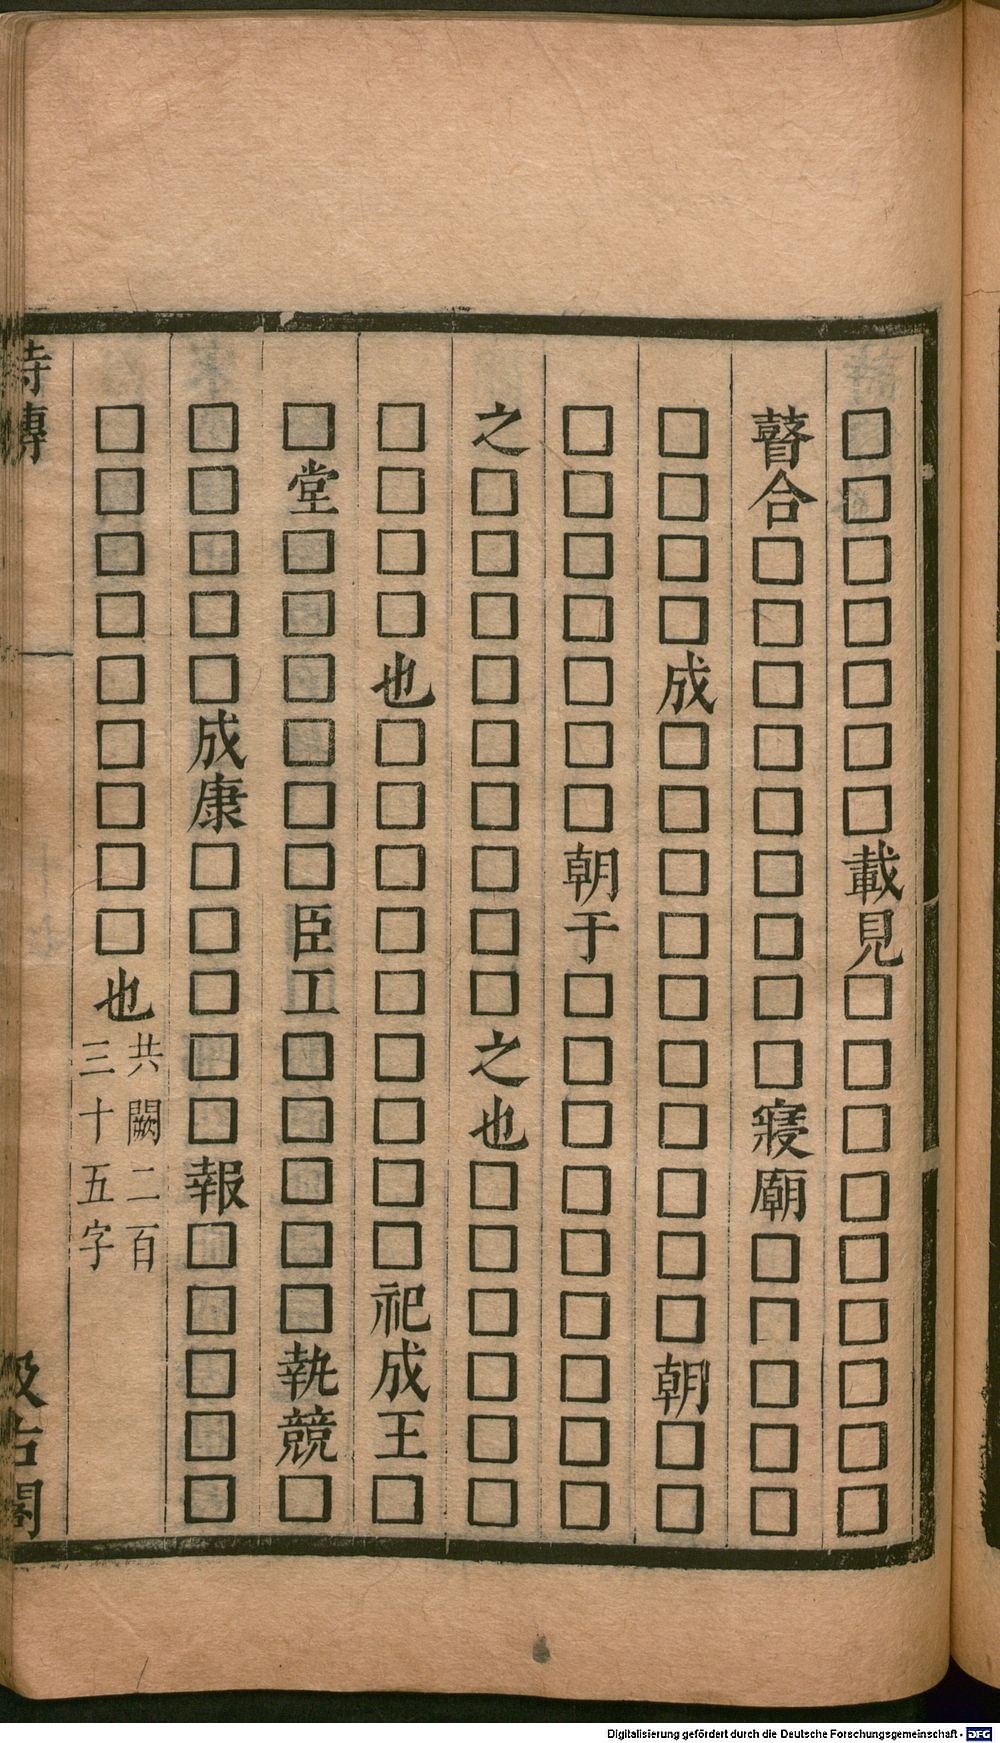 □□□□□□□載見□□□□□□□□□
瞽合□□□□□□□□□寢廟□□□□□
□□□□成□□□□□□□□□□朝□□
□□□□□□□朝于□□□□□□□□□
之□□□□□□□□□之也□□□□□□
□□□□也□□□□□□□□□祀成王□
□堂□□□□□□臣工□□□□□執競□
□□□□□成康□□□□□報□□□□□
□□□□□□□□□也
共闕二百
三十五字
詩傳
汲古閣
Digitalisierung gefördert durch die Deutsche Forschungsgemeinschaft - DFG